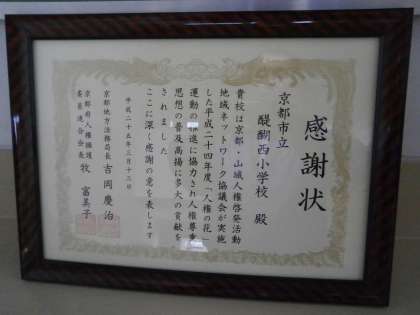 感謝状
京都市立
醍醐西小学校 殿
貴校は京都・山城人権啓発活動
地域ネットワーク協議会が実施
した平成二十四年度「人権の花」
運動の推進に協力され人権尊重
思想の普及高揚に多大の貢献を
されました
ここに深く感謝の意を表します
平成二十五年三月十三日
京都地方法務局長 吉岡慶治
京都府人権擁護
委員連合会長 牧 富美子